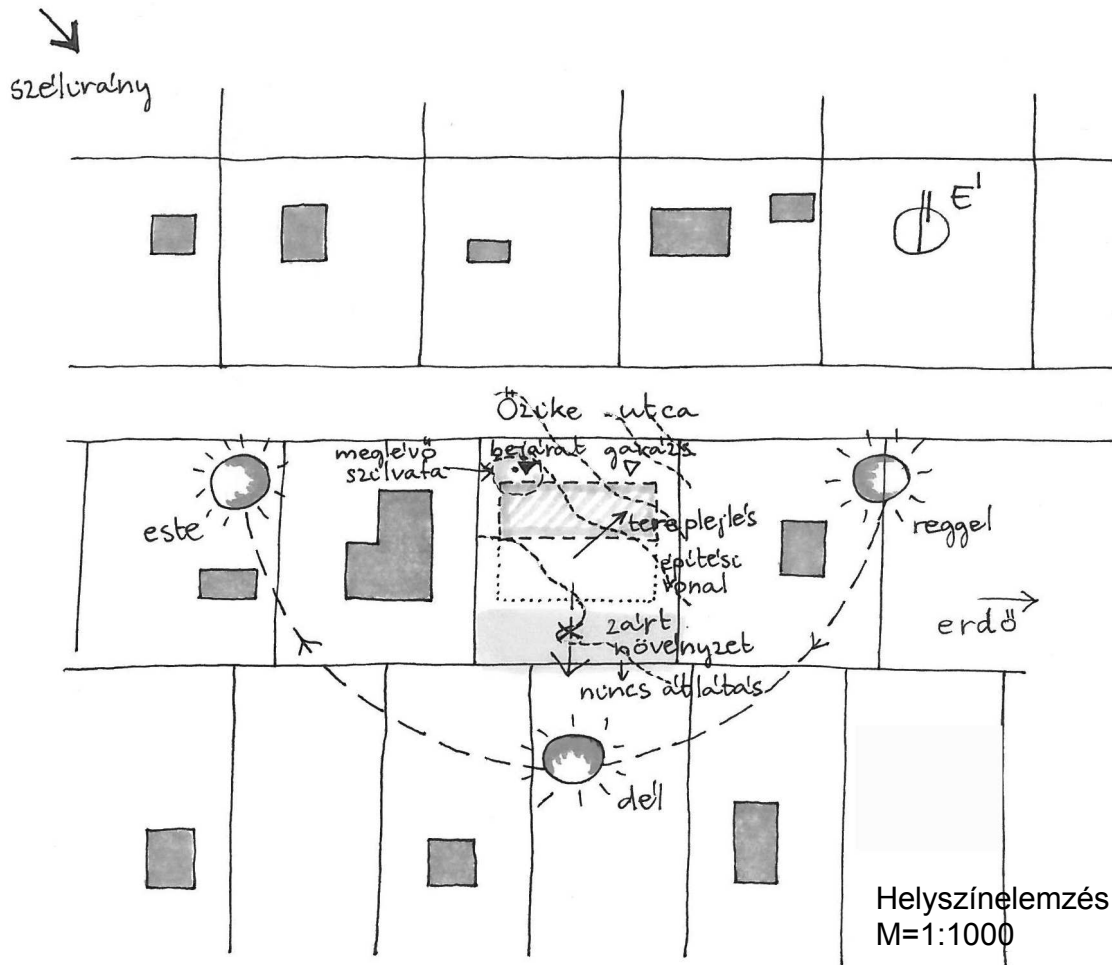 szélirány
É
Őzike utca
meglévő
szilvafa
bejárat
garázs
este
tereplejtés
reggel
építési
vonal
erdő
zárt
növényzet
nincs átlátás
dél
Helyszínelemzés
M=1:1000